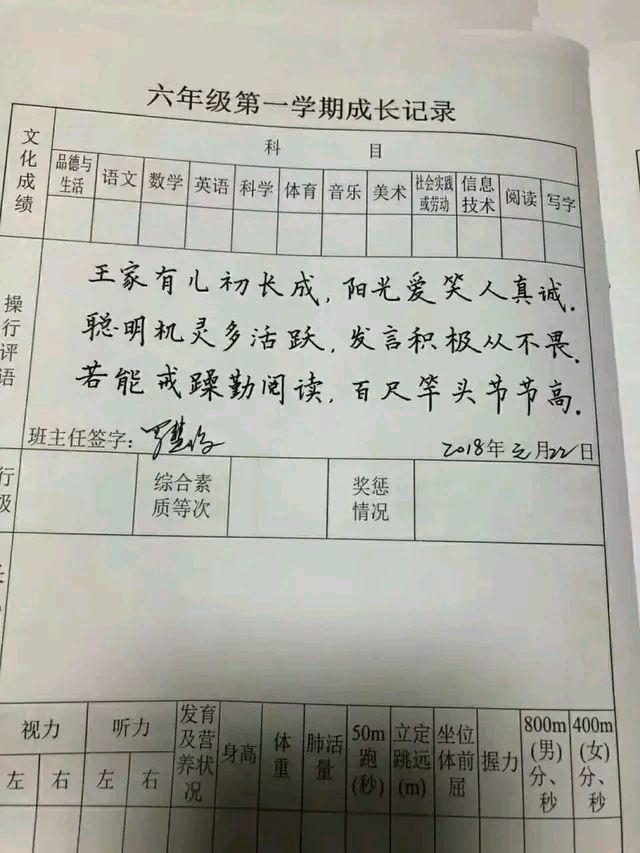 六年级第一学期成长记录
文化成绩
科目
品德与生活 语文 数学 英语 科学 体育 音乐 美术 社会实践或劳动 信息技术 阅读 写字
操行评语
王家有儿初长成，阳光爱笑人真诚.
聪明机灵多活跃，发言积极从不畏.
若能戒躁勤阅读，百尺竿头节节高.
班主任签字： 2018年元月22日
行 综合素质等次 奖惩情况
视力 听力 发育及营养状况 身高 体重 肺活量 50m跑(秒) 立定跳远(m) 坐位体前屈 握力 800m(男)分、秒 400m(女)分、秒
左 右 左 右